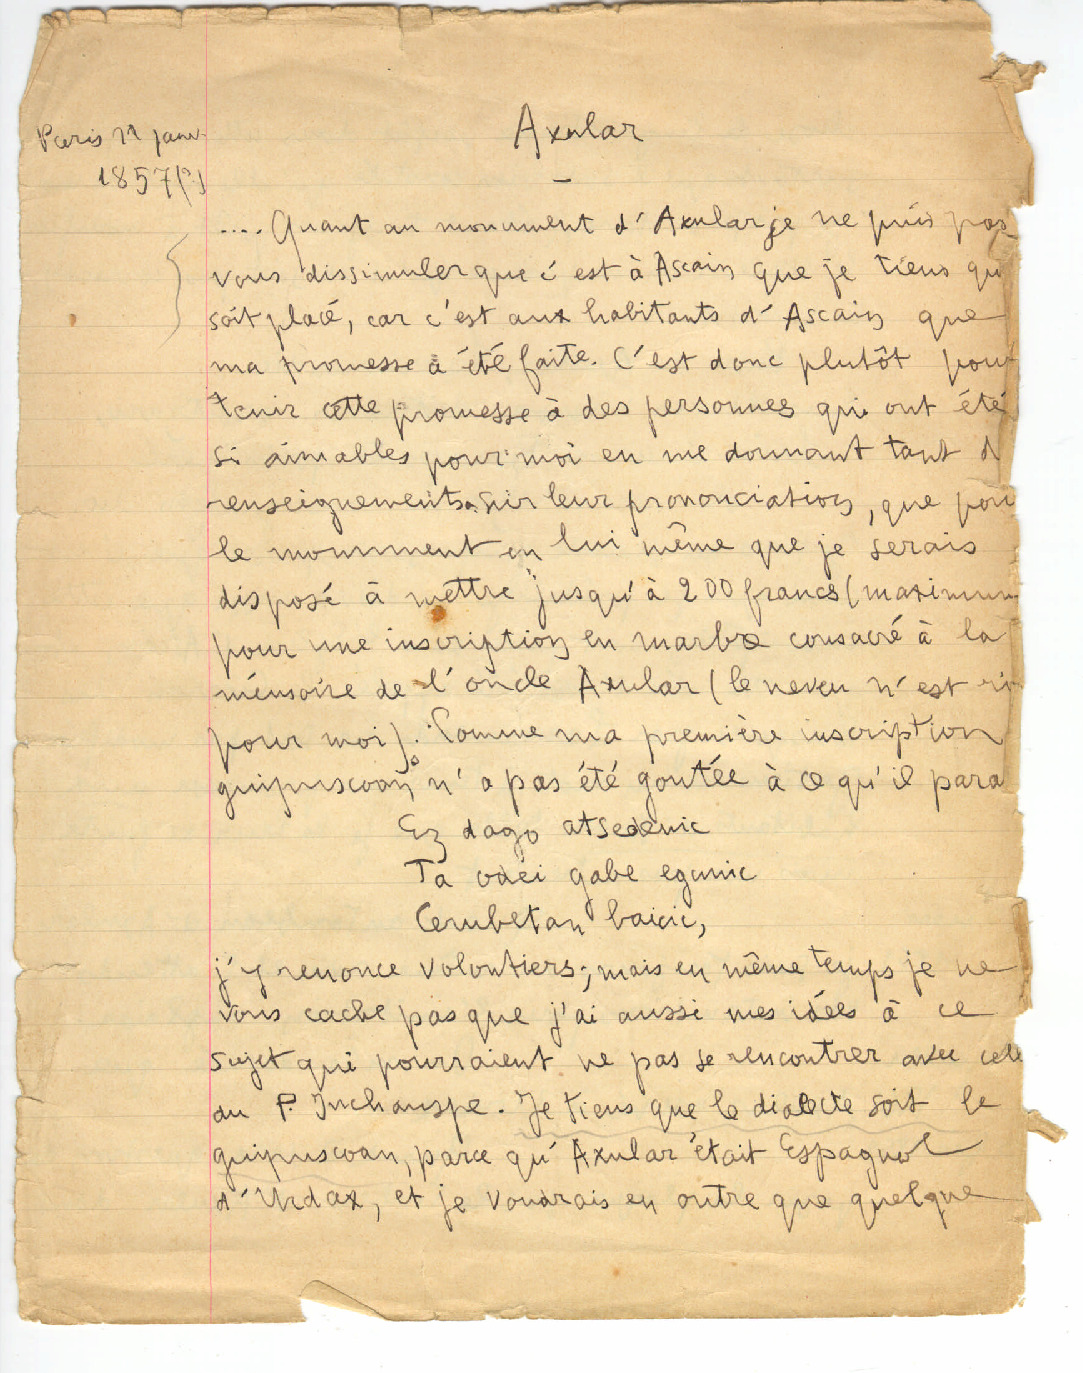 Axular
Paris 11 janv.
1857(?)
.... Quant au monument d'Axular je ne puis pas
vous dissimuler que c'est à Ascain que je tiens qu
soit placé, car c'est aux habitants d'Ascain que
ma promesse a été faite. C'est donc plutôt pour
tenir cette promesse à des personnes qui ont été
si aimables pour moi en me donnant tant d
renseignements sur leur prononciation, que pou
le monument en lui même que je serais
disposé à mettre jusqu'à 200 francs (maximum
pour une inscription en marbre consacré à la
mémoire de l'oncle Axular (le neveu n'est ri
pour moi). Comme ma première inscription
guipuscoan n'a pas été goutée à ce qu'il para
Ez dago atsedenic
Ta odei gabe egunic
Cerubetan baicic,
j'y renonce volontiers; mais en même temps je ne
vous cache pas que j'ai aussi mes idées à ce
sujet qui pourraient ne pas se rencontrer avec cele
du P. Inchauspe. Je tiens que le dialecte soit le
guipuscoan, parce qu'Axular était Espagnol
d'Urdax, et je voudrais en outre que quelque